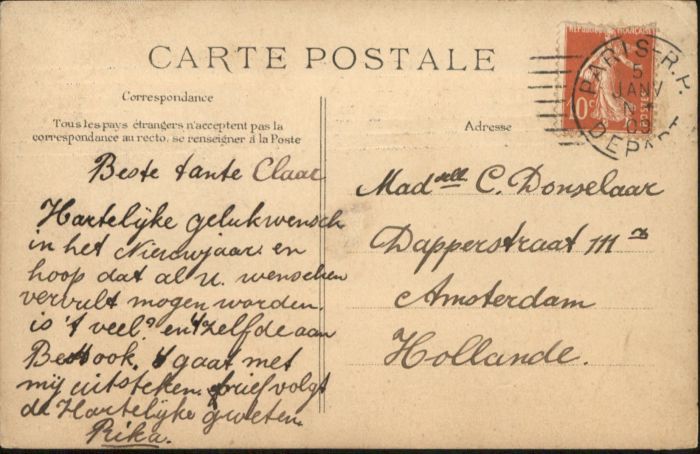 CARTE POSTALE
Correspondance
Tous les pays étrangers n'acceptent pas la
correspondance au recto, se renseigner à la Poste
Adresse
Beste tante Claar
Hartelijke gelukwensch
in het Nieuwjaar en
hoop dat al U. wenschen
vervult mogen worden.
is 't veel? en 't zelfde aan
Bets ook. 't gaat met
mij uitsteken. brief volgt
de Hartelijke groeten.
Rika.
Mad ell C. Donselaar
Dapperstraat 111
Amsterdam
Hollande.
PARIS-R.P.
5
JANV
09
DEPART
10c